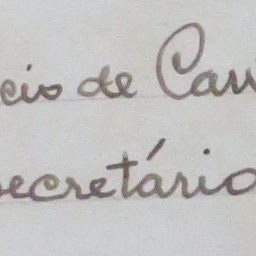 cio de Car
secretário